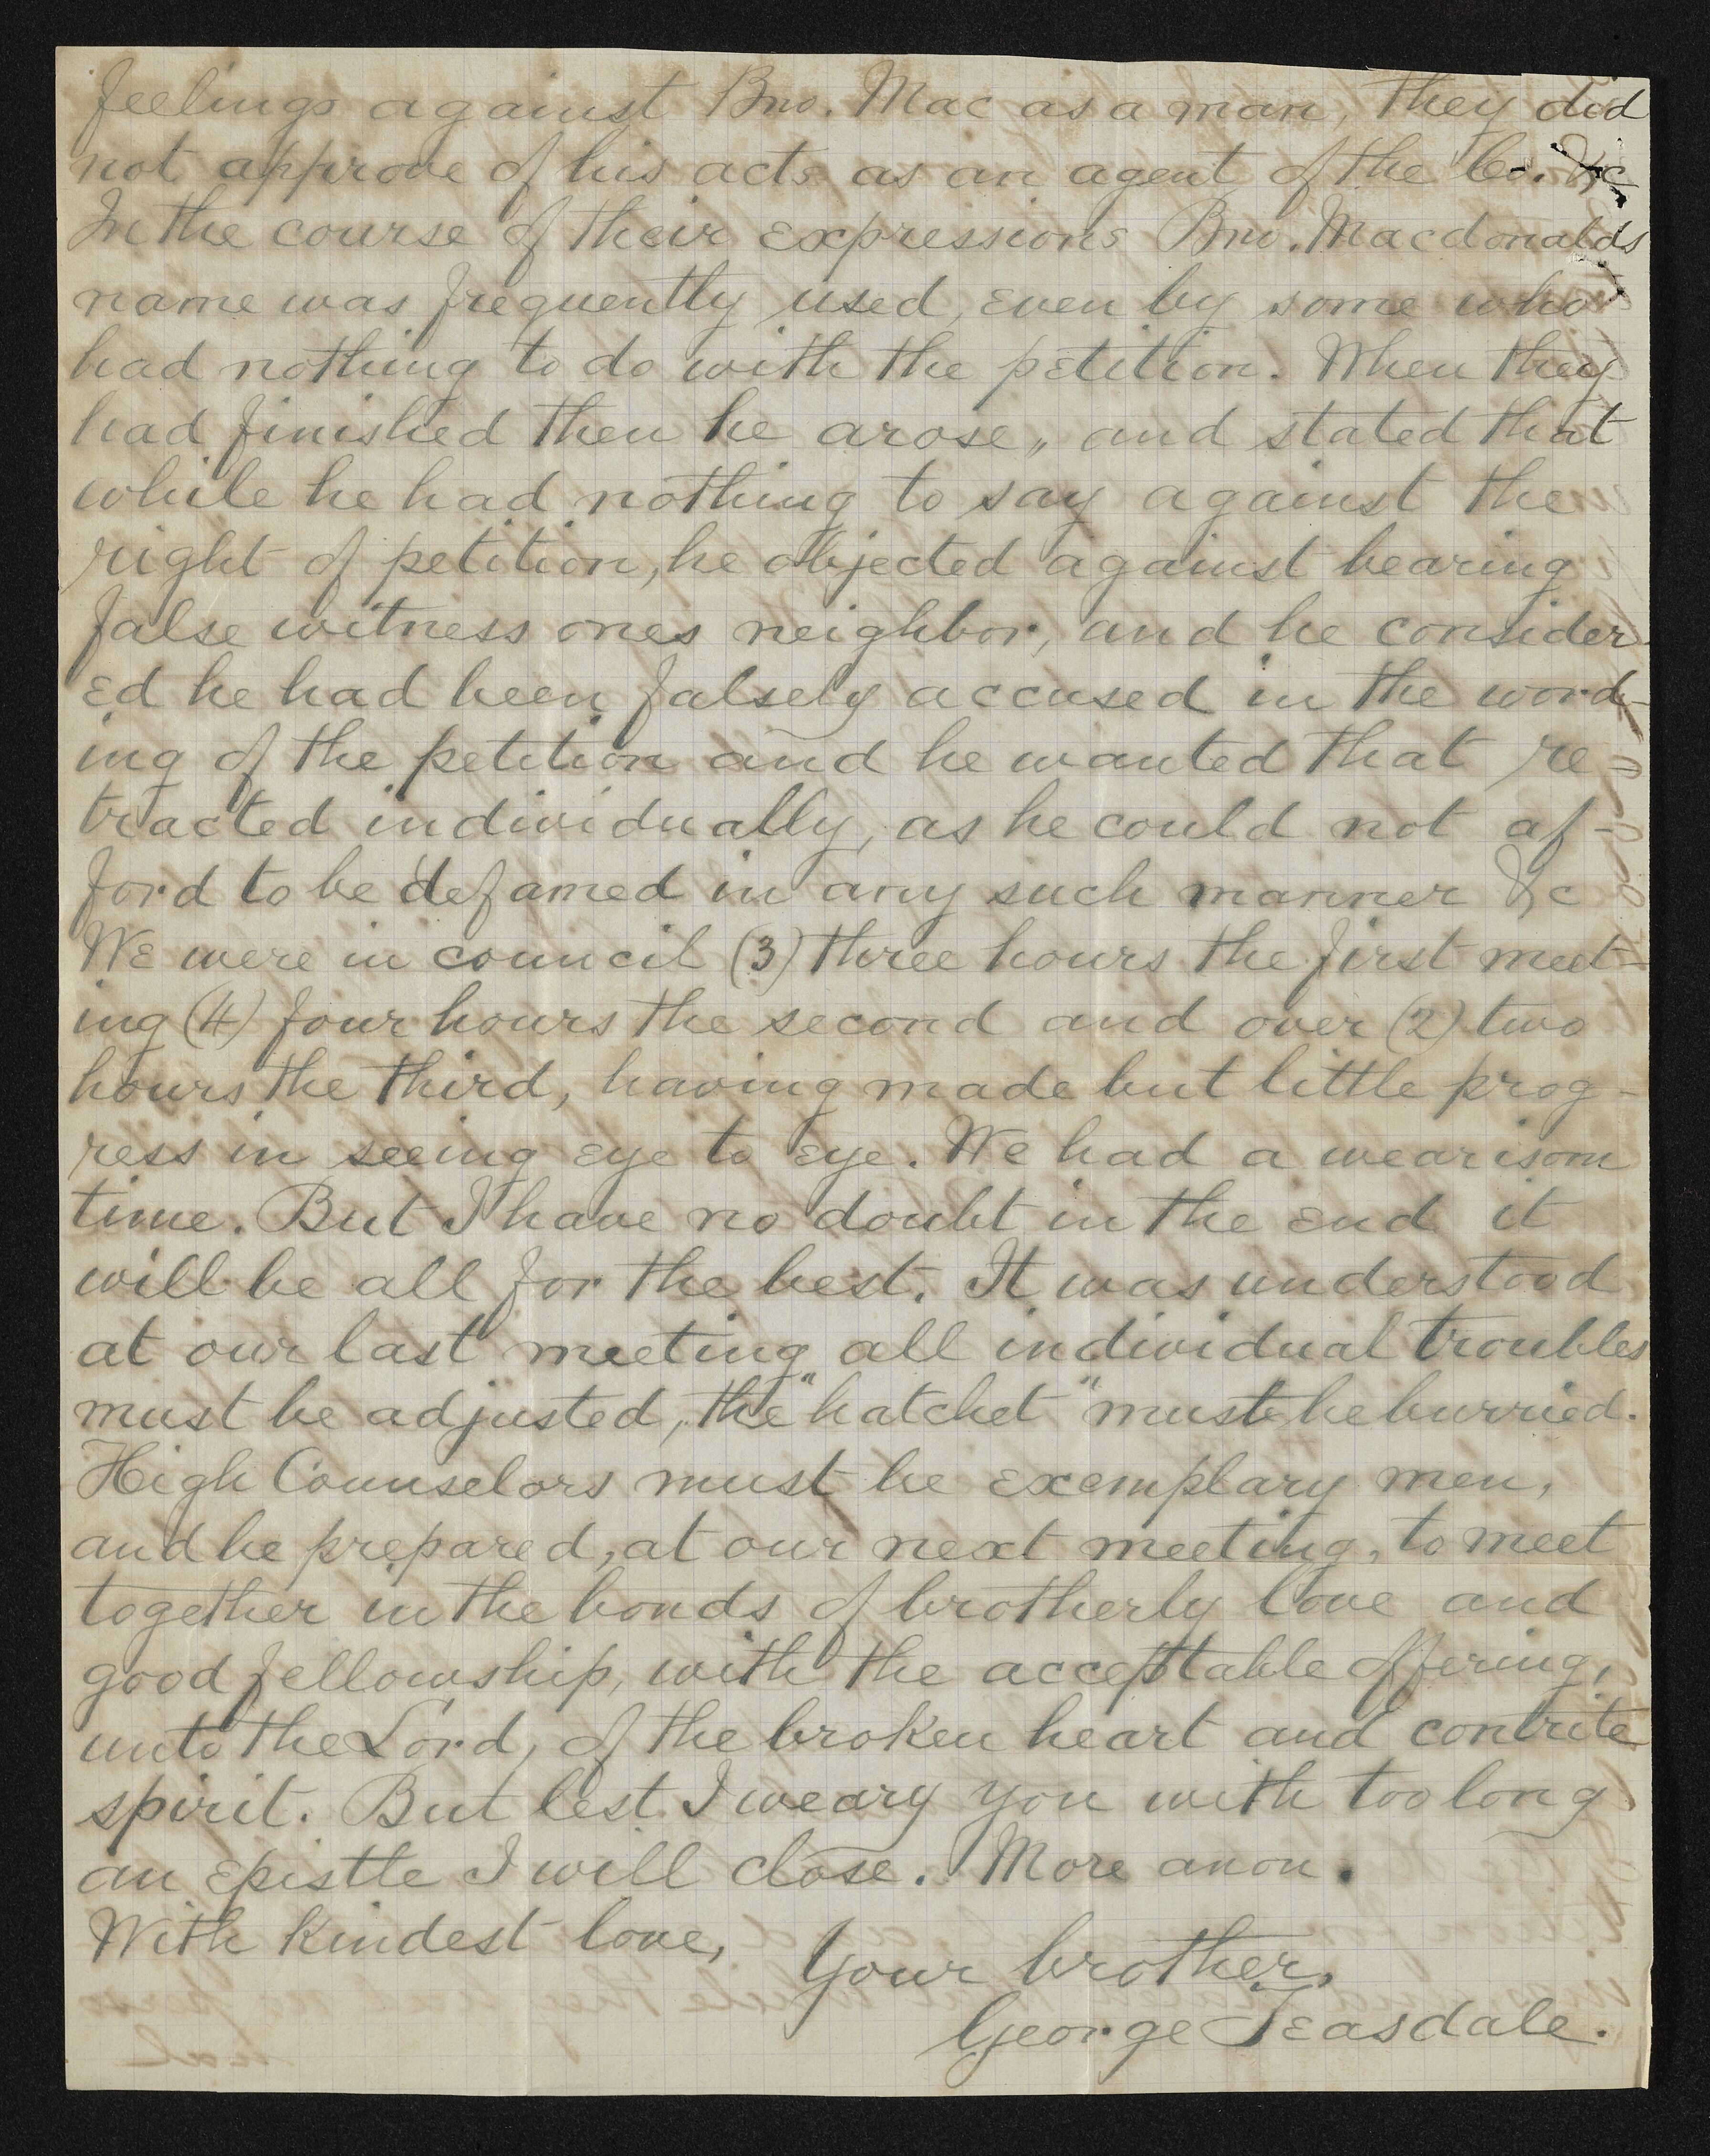 feelings against Bro. Mac as a man, they did
not approve of his acts as an agent of the Co. &c
In the course of their expressions Bro. Macdonalds
name was frequently used, even by some who
had nothing to do with the petition. When they
had finished then he arose,, and stated that
while he had nothing to say against the
right of petition, he objected against bearing
false witness ones neighbor, and he consider-
ed he had been falsely accused in the word-
ing of the petition and he wanted that re=
tracted individually, as he could not af-
ford to be defamed in any such manner &c
We were in council (3) three hours the first meet-
ing (4) four hours the second and over (2) two
hours the third, having made but little prog-
ress in seeing eye to eye. We had a wearisom
time. But I have no doubt in the end it
will be all for the best. It was understood
at our last meeting all individual troubles
must be adjusted, the "hatchet" must be burried.
High Counselors must be exemplary men,
and be prepared, at our next meeting, to meet
together in the bonds of brotherly love and
good fellowship, with the acceptable offering,
unto the Lord, of the broken heart and contrite
spirit. But lest I weary you with too long
an epistle I will close. More anon.
With kindest love,
Your brother,
George Teasdale.